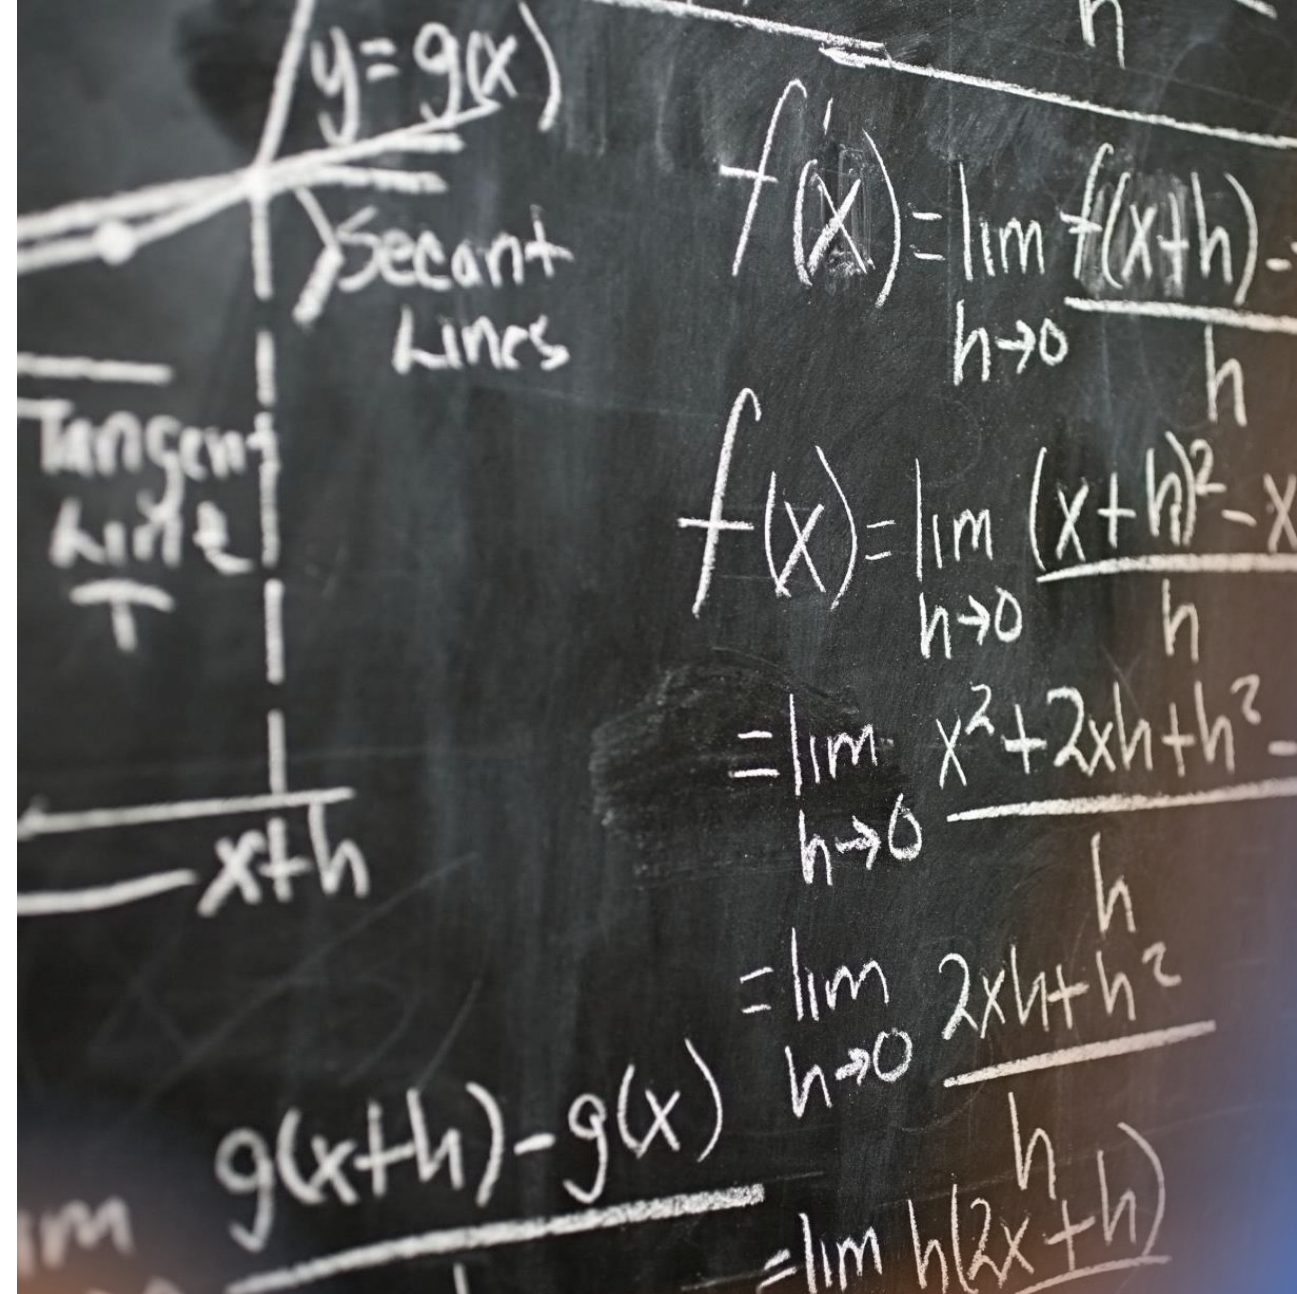 y = g(x)
Secant
Lines
Tangent
Line
T
x+h
g(x+h) - g(x)
lim
h
f'(x) = lim f(x+h) -
h→0 h
f(x) = lim (x+h)² - x
h→0 h
= lim x² + 2xh + h² -
h→0 h
= lim 2xh + h²
h→0 h
= lim h(2x+h)